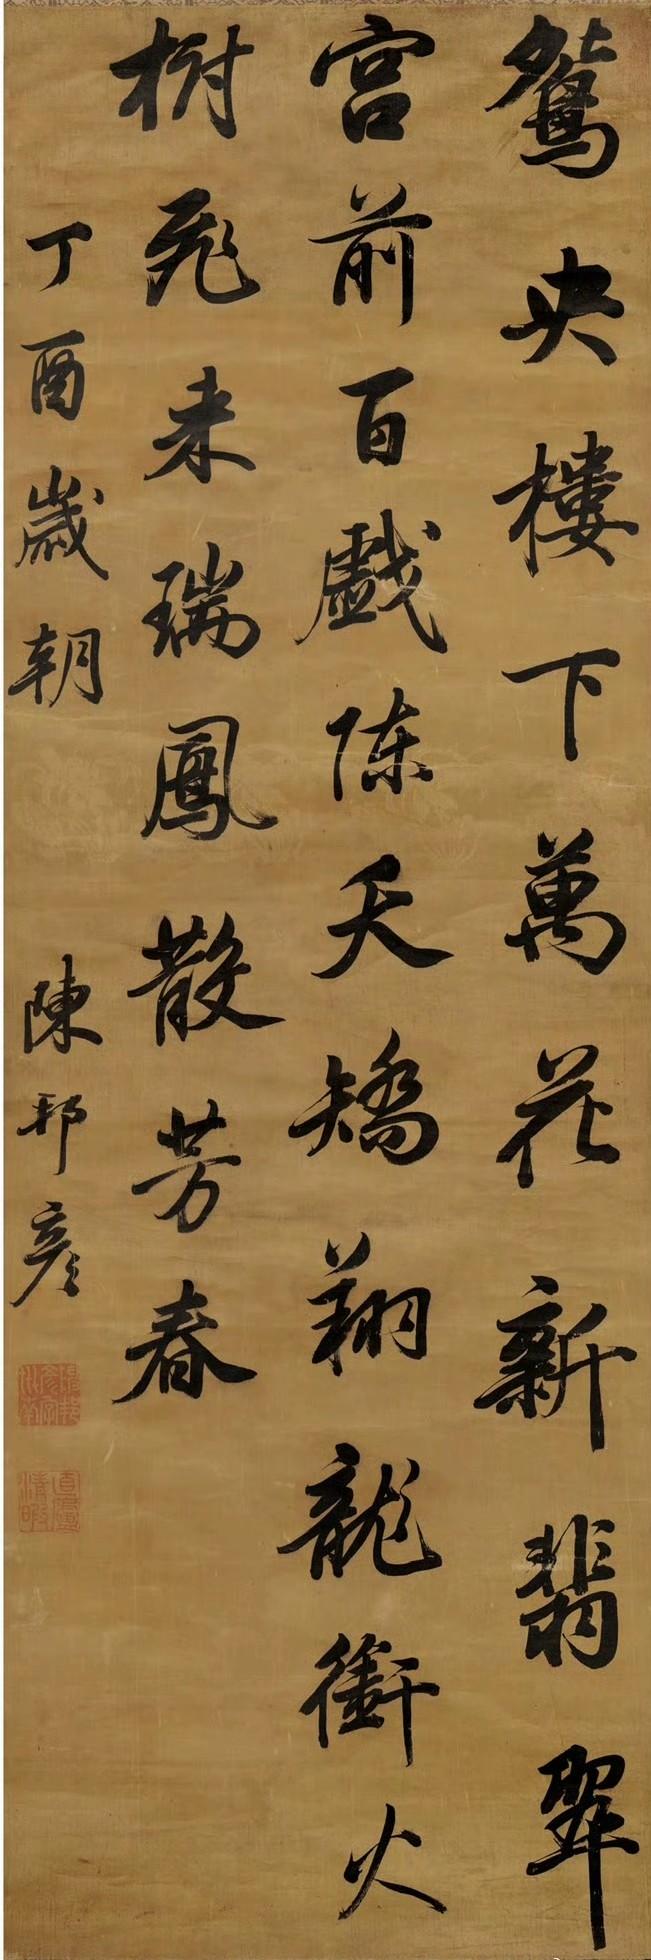 鴛央樓下萬花新翡翠
宮前百戲陳夭矯翔龍銜火
樹飛來瑞鳳散芳春
丁酉歲朝 陳邦彥
直廬清暇